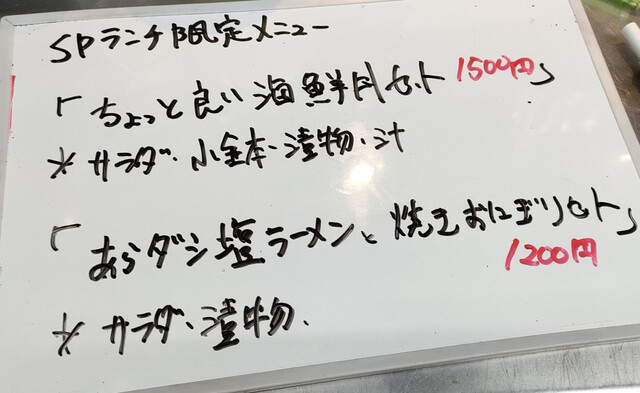 SPランチ限定メニュー
「ちょっと良い海鮮丼セット 1500円」
※サラダ・小鉢・漬物・汁
「あらダシ塩ラーメンと焼きおにぎりセット」
1200円
※サラダ・漬物.